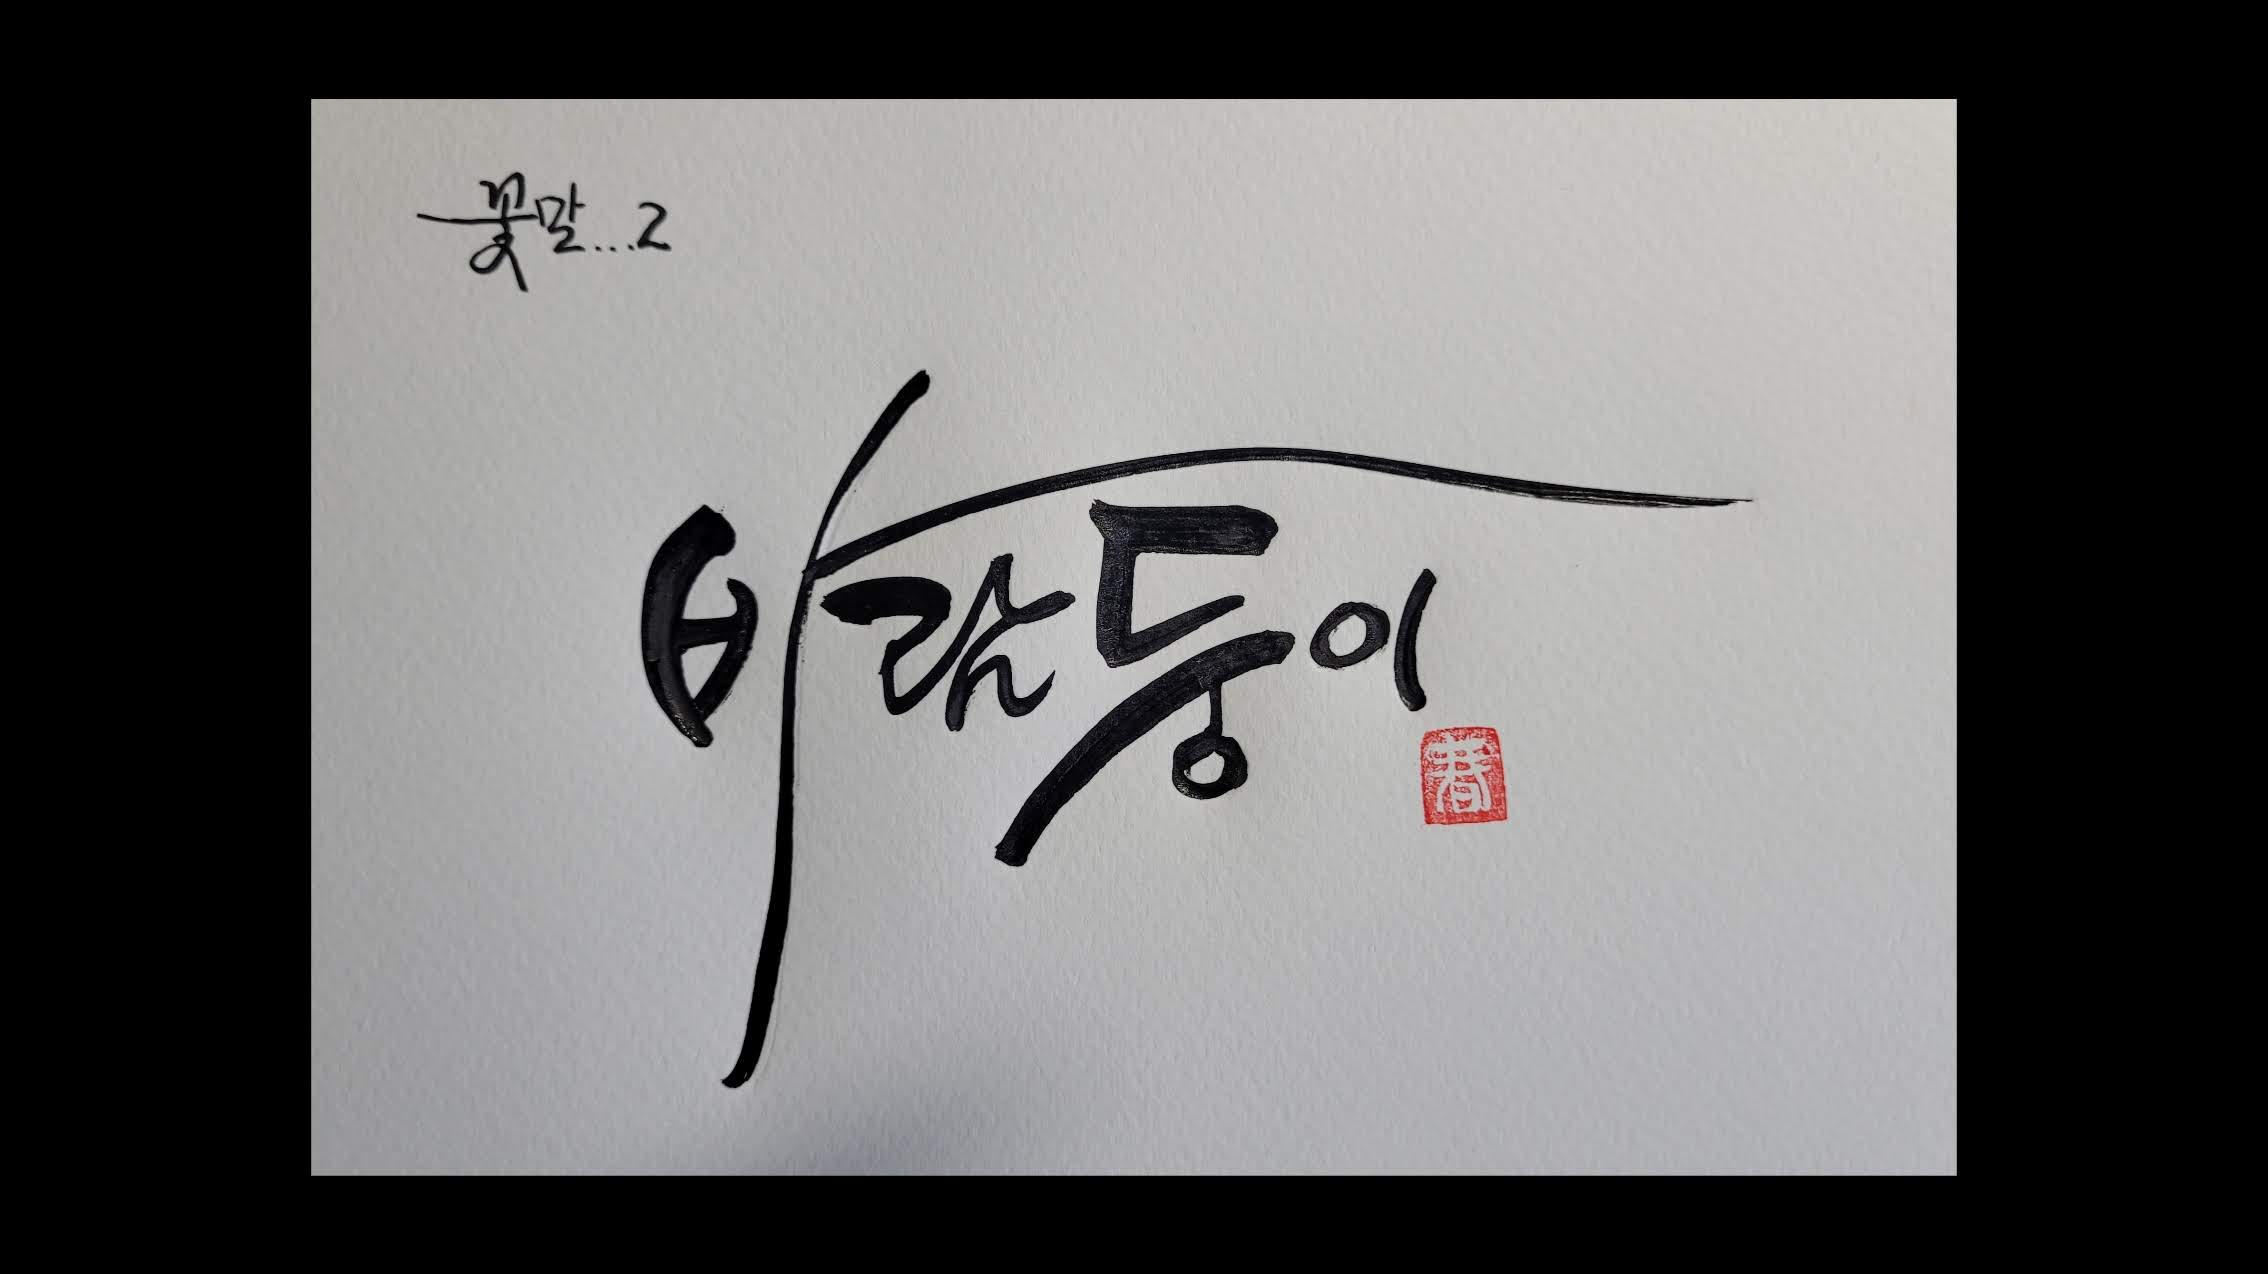 꽃말...2
바람둥이
春